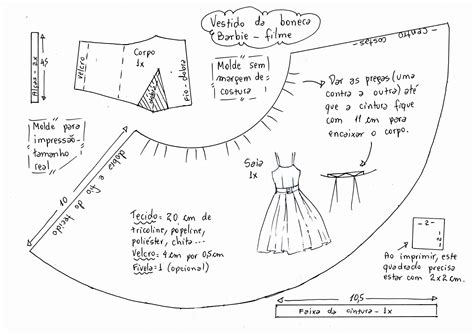 Vestido da boneca
Barbie - filme
centro costas
Alças - 2x
45
velcro
Corpo
1x
fio-dobra
Molde sem
margem de
costura
Molde para
impressão-
tamanho
real
Dar as pregas (uma
contra a outra) até
que a cintura fique
com 11 cm para
encaixar o corpo.
10
dobra e fio do tecido
Saia
1x
Tecido: 20 cm de
tricoline, popeline,
poliéster, chita...
Velcro: 4cm por 0,5cm
Fivela: 1 (opcional)
- 2 -
- 2 -
Ao imprimir, este
quadrado precisa
estar com 2x2cm.
10,5
Faixa da cintura - 1x